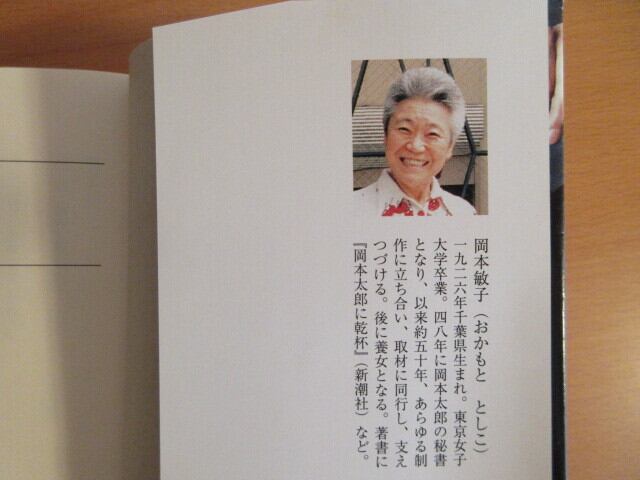 岡本敏子（おかもと　としこ）
一九二六年千葉県生まれ。東京女子
大学卒業。四八年に岡本太郎の秘書
となり、以来約五十年、あらゆる制
作に立ち合い、取材に同行し、支え
つづける。後に養女となる。著書に
『岡本太郎に乾杯』（新潮社）など。